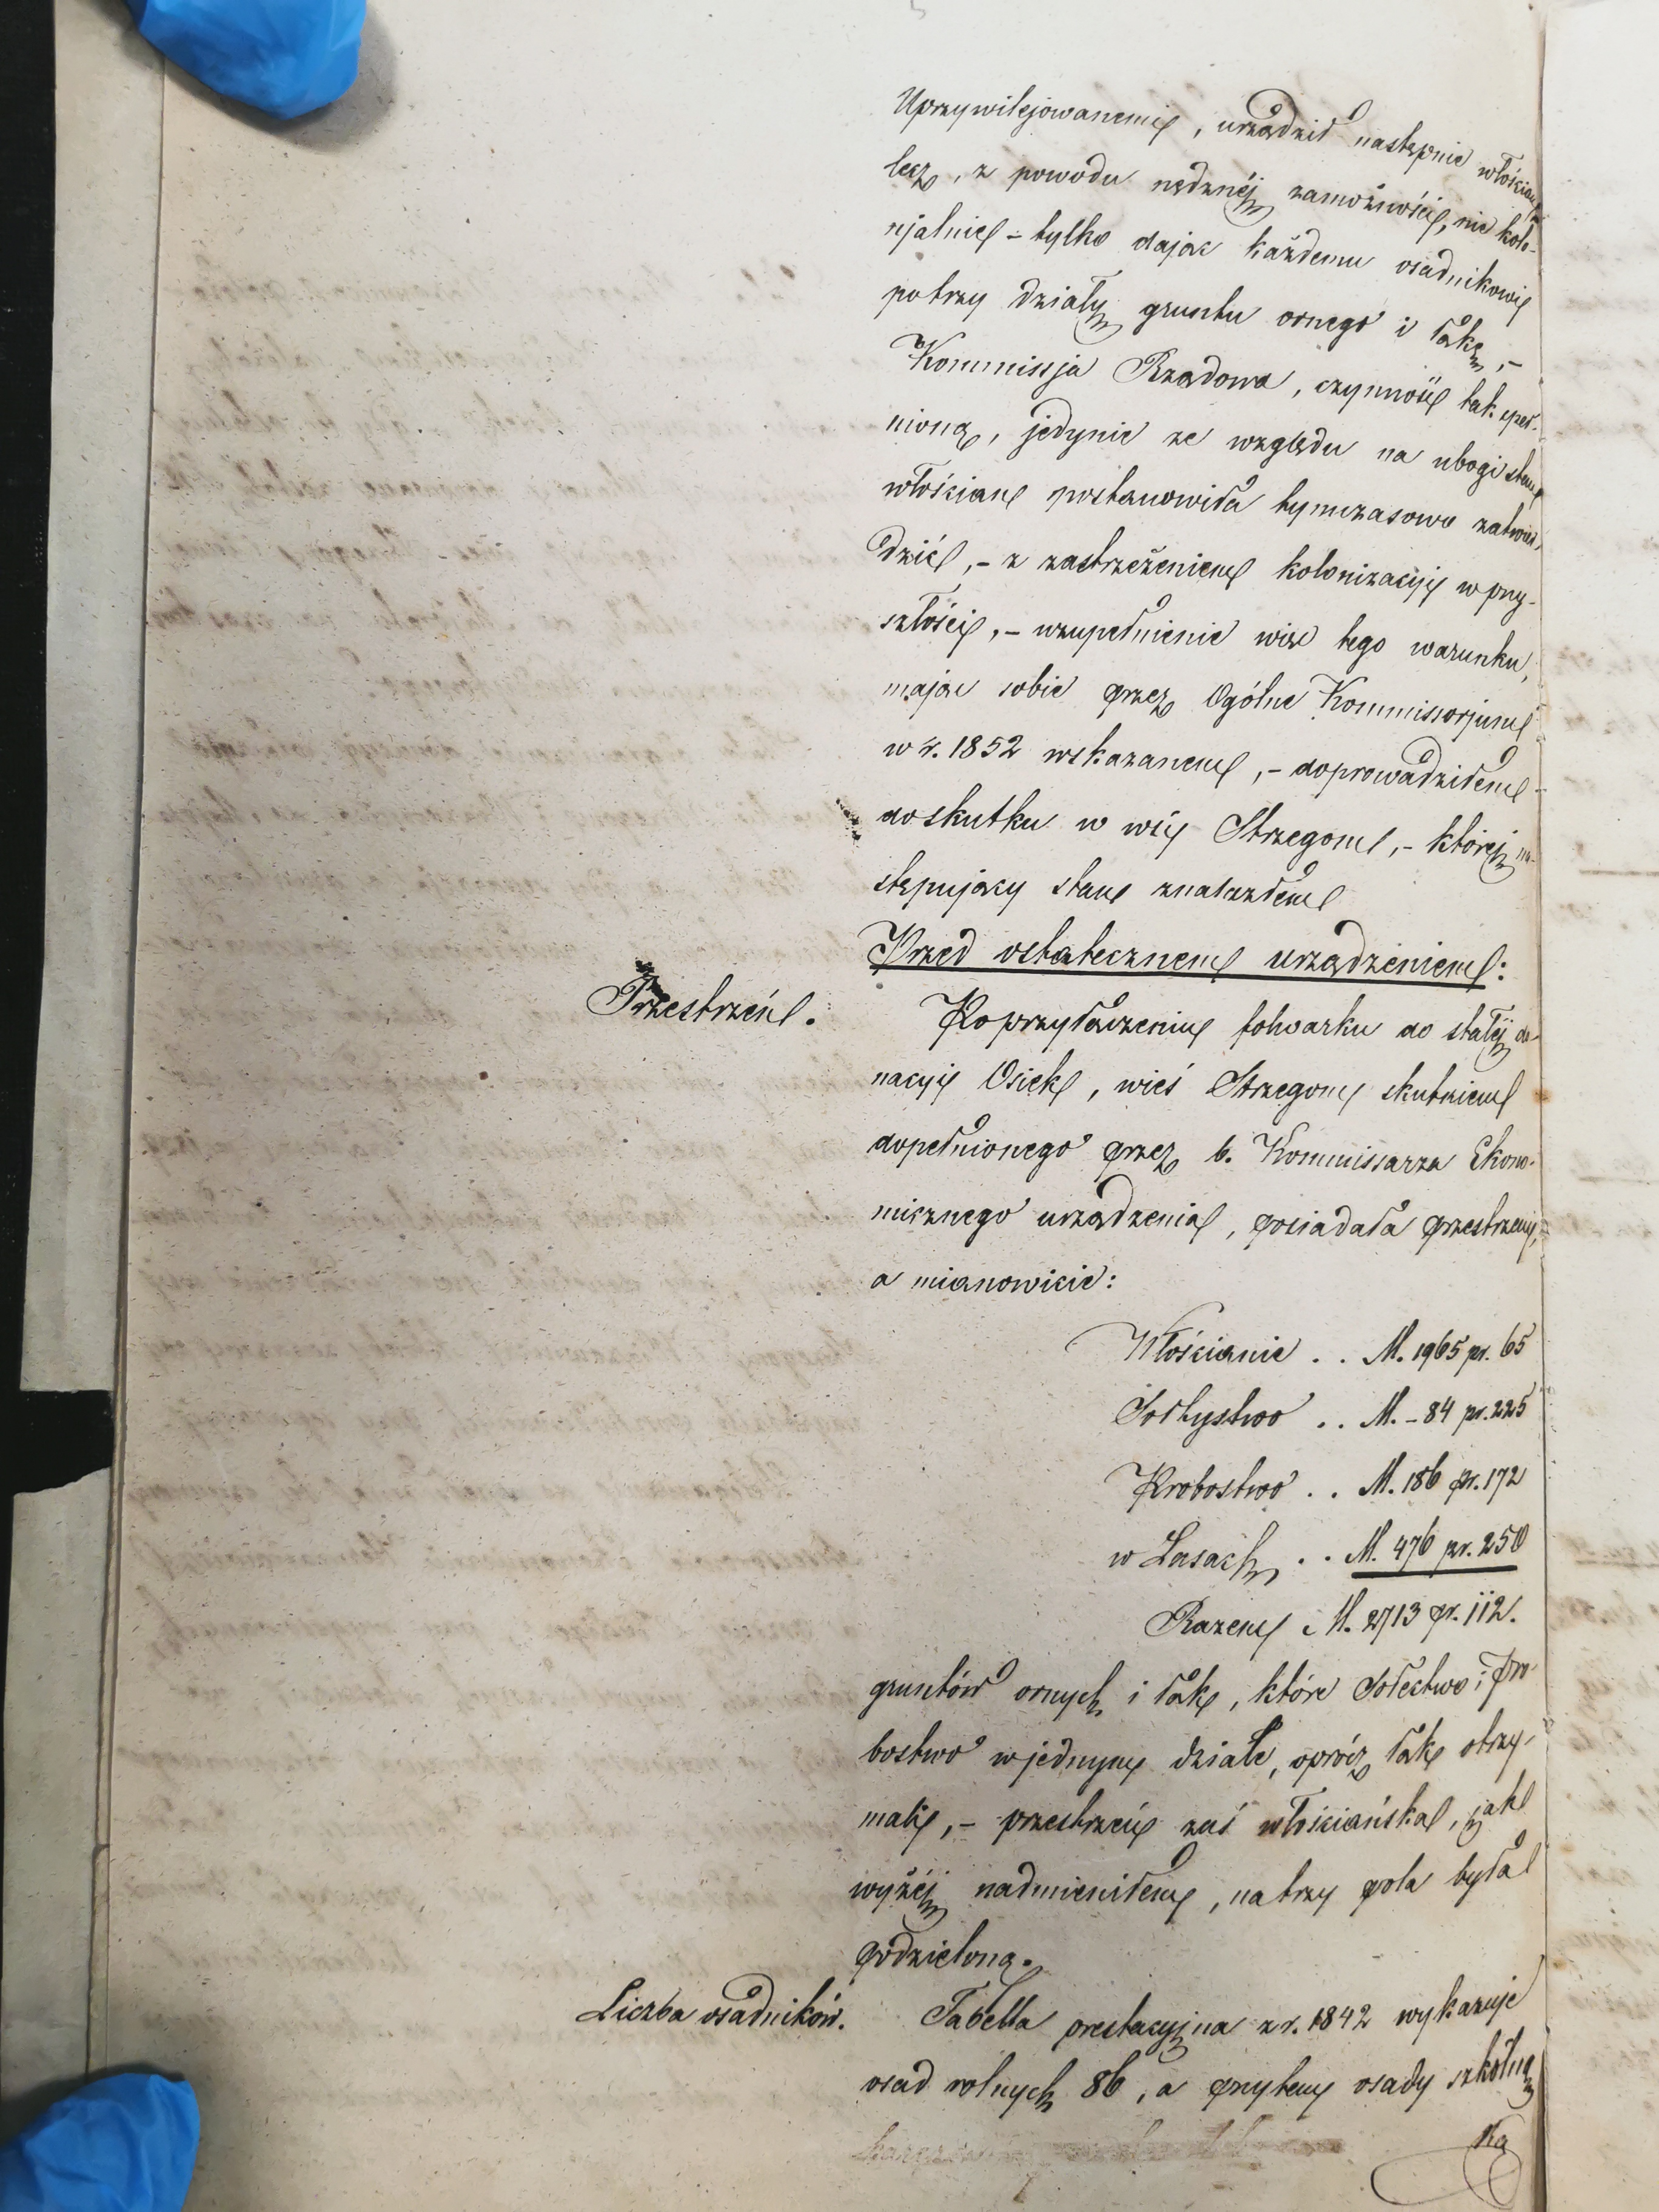 Uprzywilejowanemi, urządził następnie włościan
lecz, z powodu nędznéj zamożności, nie kolo-
njalnie – tylko dając każdemu osadnikowi
po trzy działy gruntu ornego i łąkę, –
Kommissja Rządowa, czynność tak speł-
nioną, jedynie ze względu na ubogi stan
włościan postanowiła tymczasowo zatwier-
dzić, – z zastrzeżeniem kolonizacyi w przy-
szłości, – w zupełnienie więc tego warunku,
mając sobie przez Ogólne Kommissorjum
w r. 1852 wskazanem, – doprowadziłem
do skutku w wsi Strzegom, – któréj na-
stępujący stan znalazłem
Przed ostatecznem urządzeniem:
Przestrzeń.
Po przyłączeniu folwarku do stałéj do-
nacyi Osiek, wieś Strzegom skutkiem
dopełnionego przez b. Kommissarza Ekono-
micznego urządzenia, posiadała przestrzeni,
a mianowicie:
Włościanie . . M. 1965 pr. 65
Sołtystwo . . M. – 84 pr. 225
Probostwo . . M. 186 pr. 172
w Lasach . . M. 476 pr. 250
Razem M. 2713 pr. 112.
gruntów ornych i łąk, które Sołectwo i Pro-
bostwo w jednym dziale, oprócz łąk otrzy-
mali, – przestrzeń zaś włościańska, jak
wyżéj nadmieniłem, na trzy pola była
podzieloną.
Liczba osadników.
Tabella prestacyjna z r. 1842 wykazuje
osad rolnych 86, a przytem osady szkolną